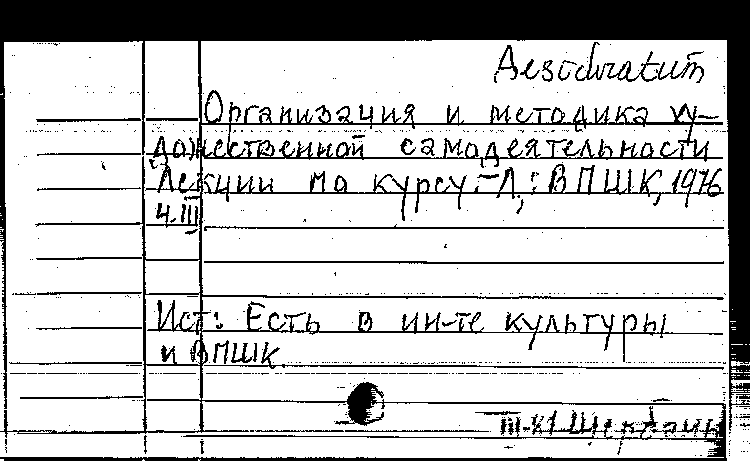 Desideratum
Организация и методика ху-
дожественной самодеятельности
Лекции по курсу.-Л,: ВПШК, 1976
Ч.III
Ист: Есть в ин-те культуры
и ВПШК.
III-К1